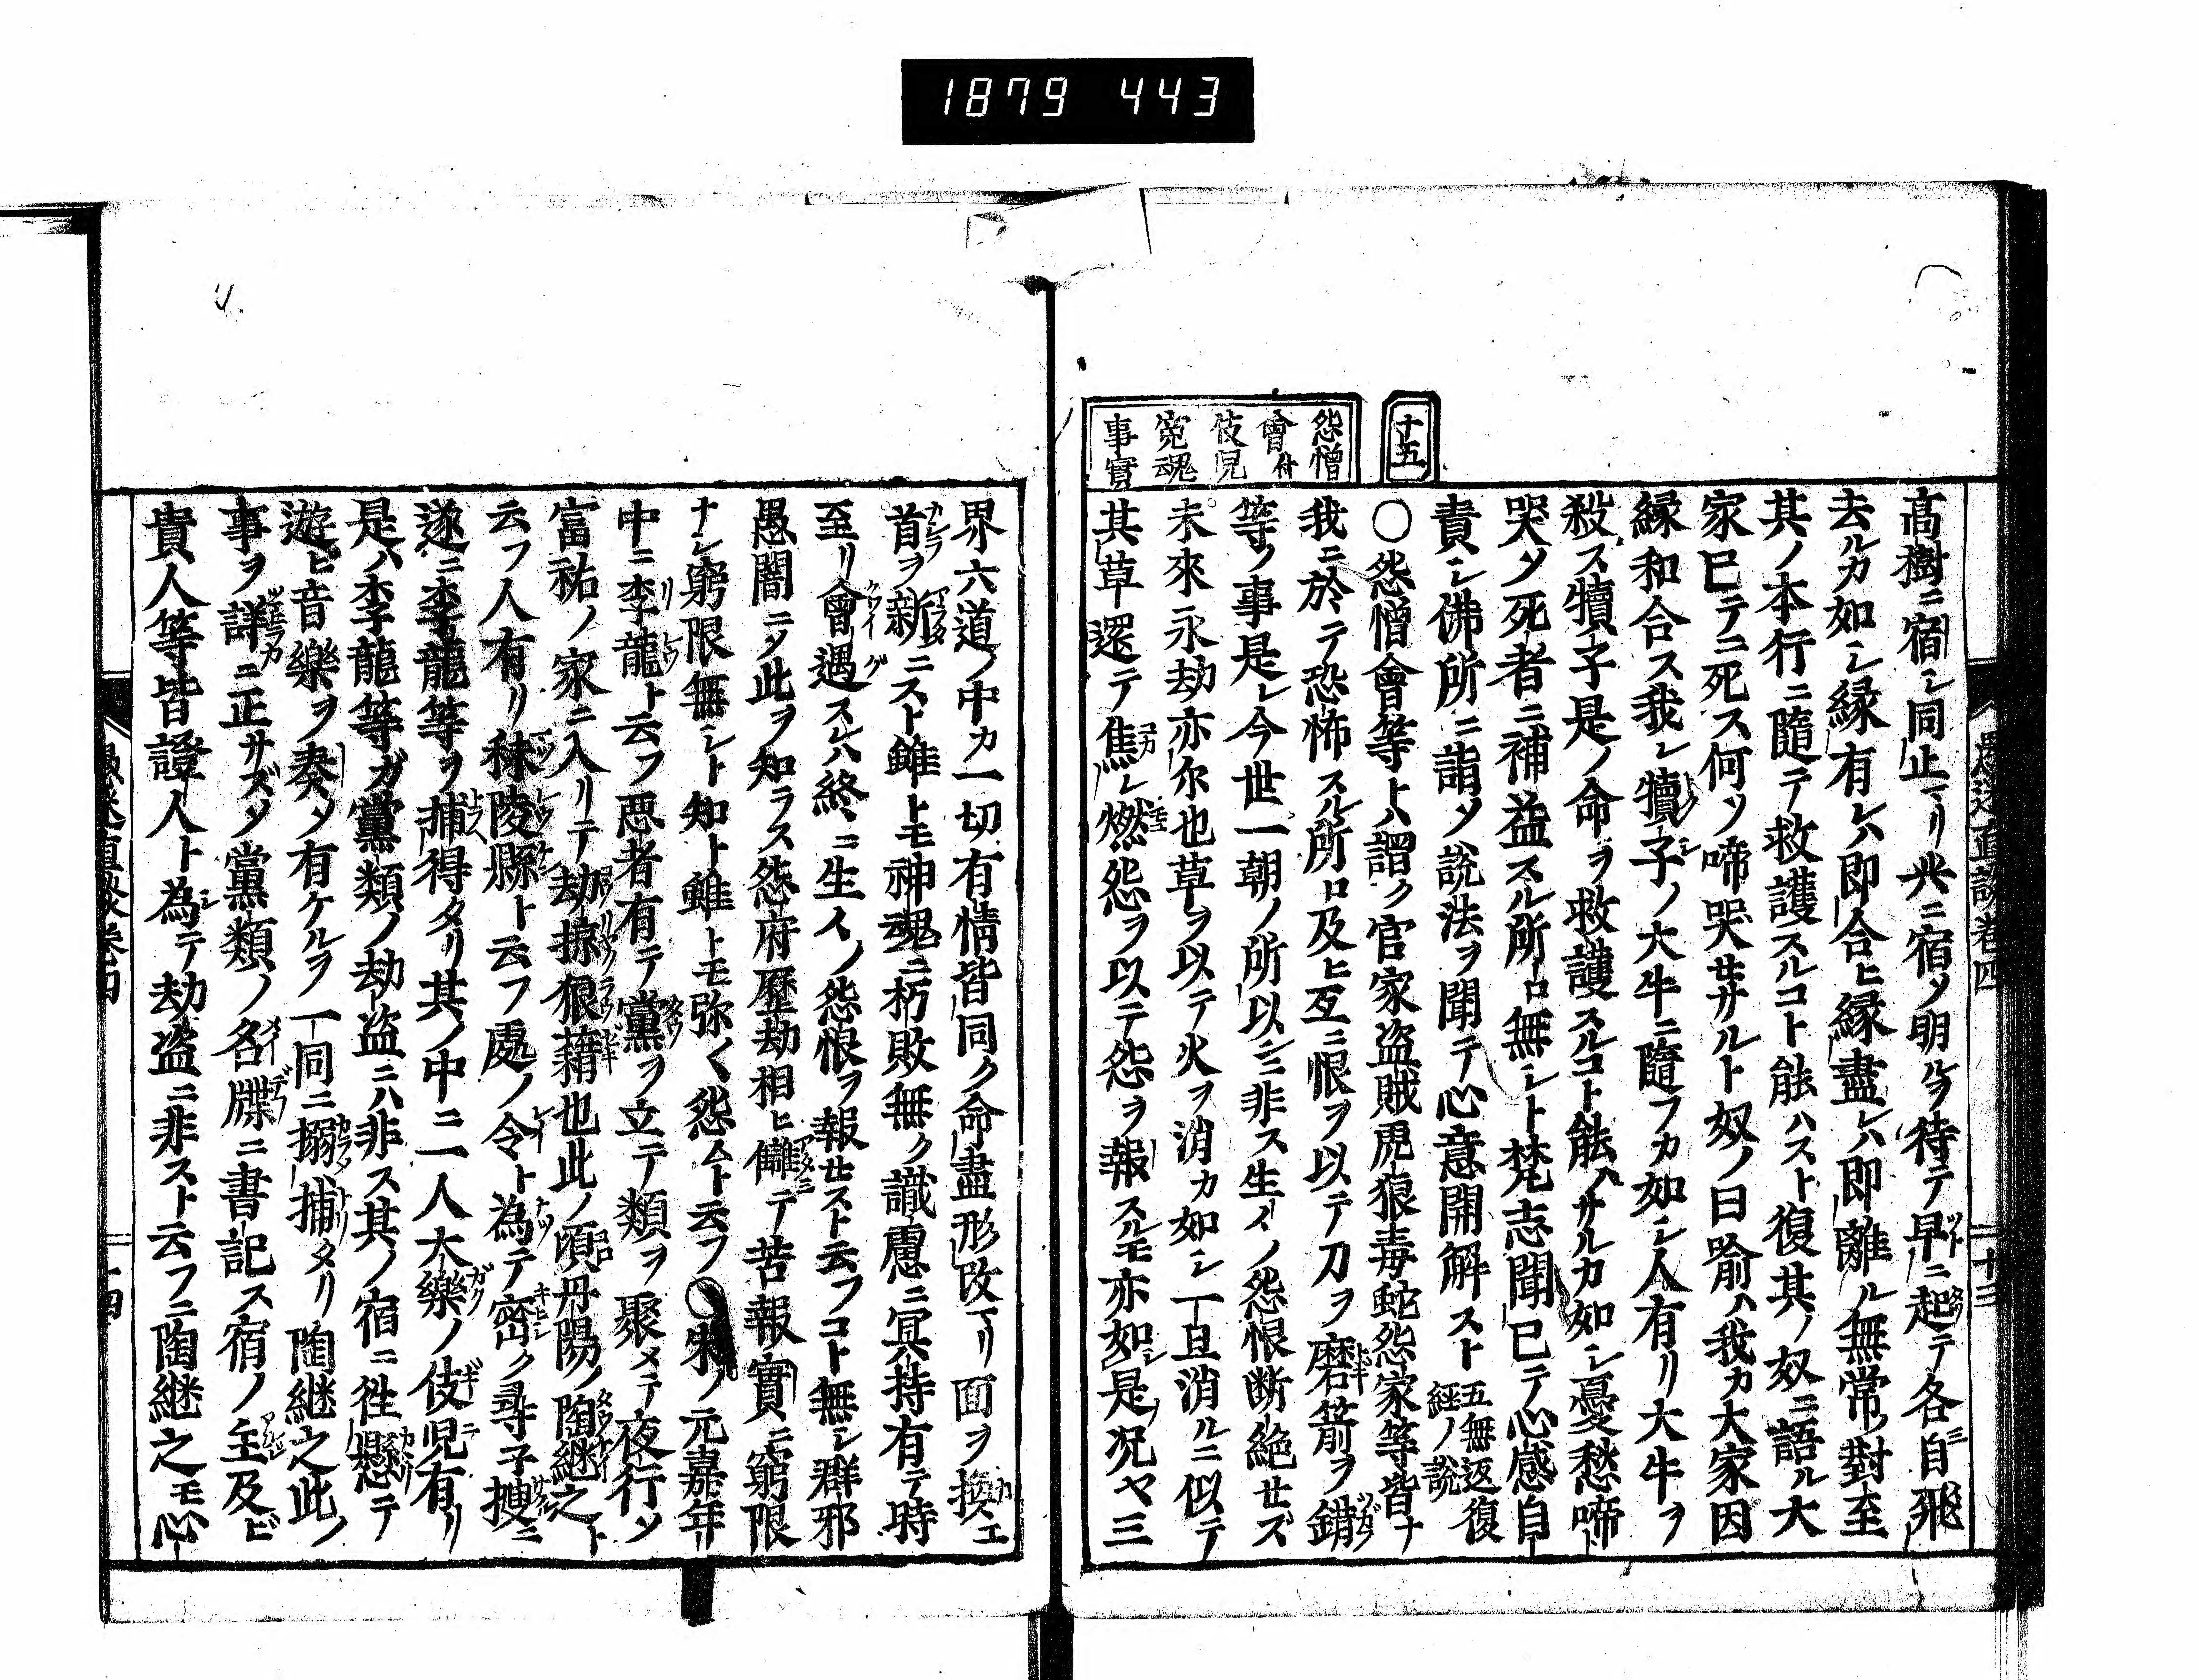 1879 443
十五
怨憎
會付
伎児
寃魂
事實
高樹ニ宿シ同止マリ共ニ宿メ明ルヲ待テ早ニ起テ各自飛
去ルカ如シ縁有レハ即合ヒ縁盡レハ即離ル無常對至
其ノ本行ニ隨テ救護スルコト能ハスト復其ノ奴ニ語ル大
家已テニ死ス何ソ啼哭セサルト奴ノ曰喻ハ我カ大家因
縁和合ス我レ犢子ノ大牛ニ隨フカ如シ人有リ大牛ヲ
殺ス犢子是ノ命ヲ救護スルコト能ハサルカ如シ憂愁啼
哭メ死者ニ補益スル所ロ無シト梵志聞已テ心感自
責シ佛所ニ詣メ説法ヲ聞テ心意開解スト五無返復經ノ説
〇怨憎會等トハ謂ク官家盗賊虎狼毒蛇怨家等皆ナ
我ニ於テ恐怖スル所ロ及ヒ互ニ恨ヲ以テ刀ヲ磨箭ヲ錯
等ノ事是レ今世一朝ノ所以ニ非ス生々ノ怨恨断絶セズ
未來ニ永劫亦尓也草ヲ以テ火ヲ消カ如シ一旦消ルニ似テ
其草還テ焦レ燃怨ヲ以テ怨ヲ報スルモ亦如是況ヤ三
界六道ノ中カ一切有情皆同ク命盡形改マリ面ヲ換エ
首ヲ新ニスト雖トモ神魂ニ朽敗無ク識慮ニ冥持有テ時
至リ會遇スレハ終ニ生々ノ怨恨ヲ報セスト云フコト無シ群邪
愚闇ニメ此ヲ知ラス怨府歷劫相ヒ讎テ苦報實ニ窮限
ナシ窮限無シト知ト雖トモ弥々怨ムト云フ〇宋ノ元嘉年
中ニ李龍ト云フ悪者有テ黨ヲ立テ類ヲ聚メテ夜行メ
富祐ノ家ニ入リテ劫掠狼藉也此ノ頃丹陽ノ陶継之ト
云フ人有リ秣陵縣ト云フ處ノ令ト為テ密ク尋子捜ニ
遂ニ李龍等ヲ捕得タリ其ノ中ニ一人太樂ノ伎児有リ
是ハ李龍等ガ黨類ノ劫盗ニハ非ス其ノ宿ニ徃懸テ
遊ヒ音樂ヲ奏メ有ケルヲ一同ニ搦捕タリ陶継之此ノ
事ヲ詳ニ正サズメ黨類ノ名牒ニ書記ス宿ノ主及ビ
貴人等皆證人ト為テ劫盗ニ非スト云フニ陶継之モ心